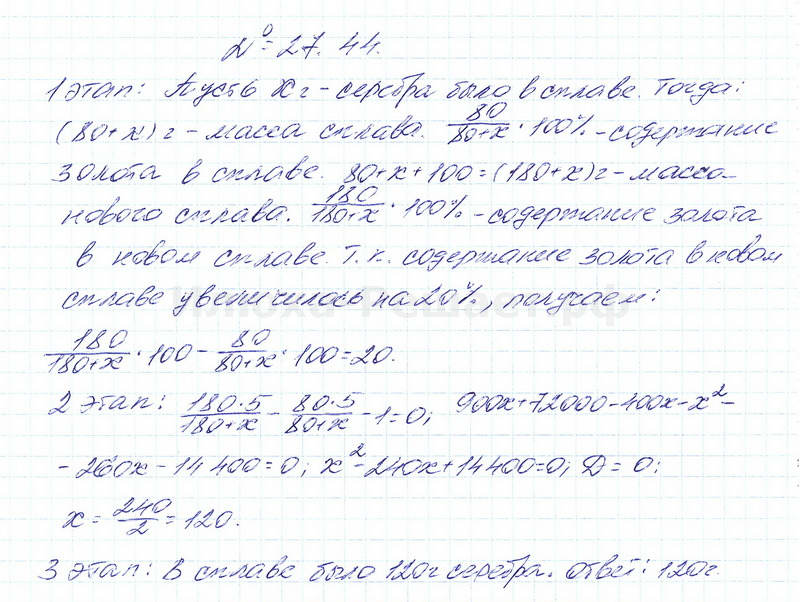 № 27.44.
1 этап: Пусть x г - серебра было в сплаве. Тогда:
(80+x) г - масса сплава. 80/(80+x) · 100% - содержание
золота в сплаве. 80+x+100=(180+x) г - масса
нового сплава. 180/(180+x) · 100% - содержание золота
в новом сплаве. Т.к. содержание золота в новом
сплаве увеличилось на 20%, получаем:
180/(180+x) · 100 - 80/(80+x) · 100 = 20.
2 этап: 180·5/(180+x) - 80·5/(80+x) - 1 = 0; 900x+72000-400x-x²-
-260x-14400=0; x²-240x+14400=0; D=0;
x = 240/2 = 120.
3 этап: В сплаве было 120 г серебра. Ответ: 120 г.